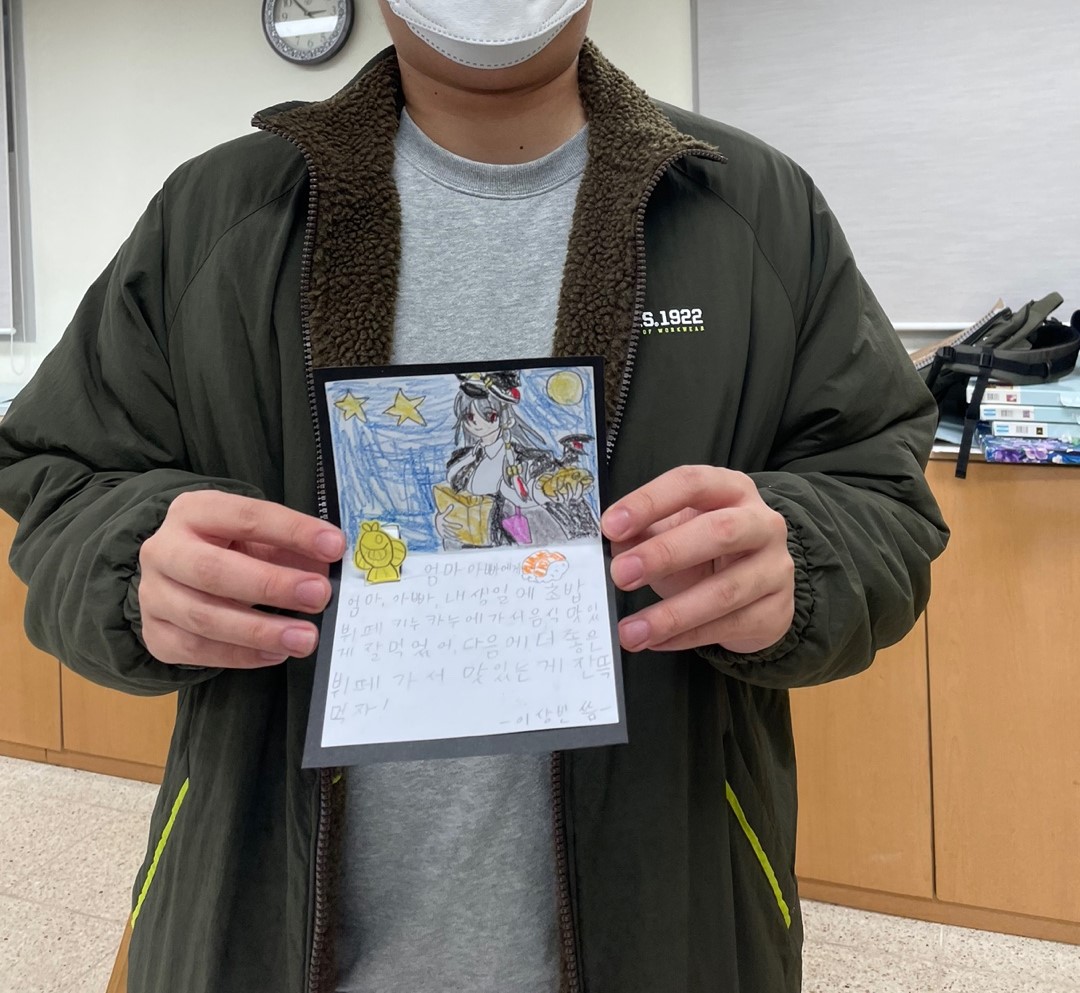 S.1922
OF WORKWEAR
엄마 아빠에게
엄마, 아빠, 내 생일에 초밥
뷔페 가누카누에 가서 음식 맛있
게 잘 먹었어, 다음에 더 좋은
뷔페 가서 맛있는 게 잔뜩
먹자!
-이상빈 씀-